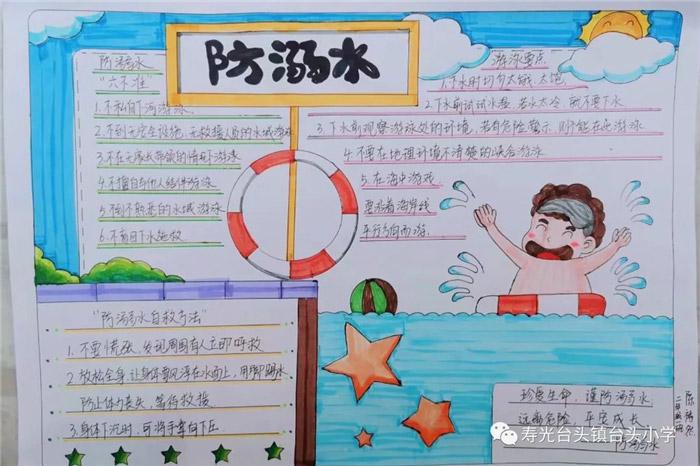 防溺水
防溺水
"六不准"
1.不私自下河游泳
2.不到无安全设施、无救援人员的水域游泳
3.不在无家长带领的情况下游泳
4.不擅自与他人结伴游泳
5.不到不熟悉的水域游泳
6.不盲目下水施救
游泳要点
1.下水时切勿太饿、太饱
2.下水前试试水温,若水太冷,就不要下水
3.下水前观察游泳处的环境,若有危险警示,则不能在此游泳
4.不要在地理环境不清楚的峡谷游泳
5.在海中游戏
要沿着海岸线
平行方向而游
"防溺水自救方法"
1.不要慌张,发现周围有人立即呼救
2.放松全身,让身体漂浮在水面上,用脚踢水
防止体力丧失,等待救援
3.身体下沉时,可将手掌向下压
珍爱生命,谨防溺水
远离危险,平安成长
防溺水
寿光台头镇台头小学